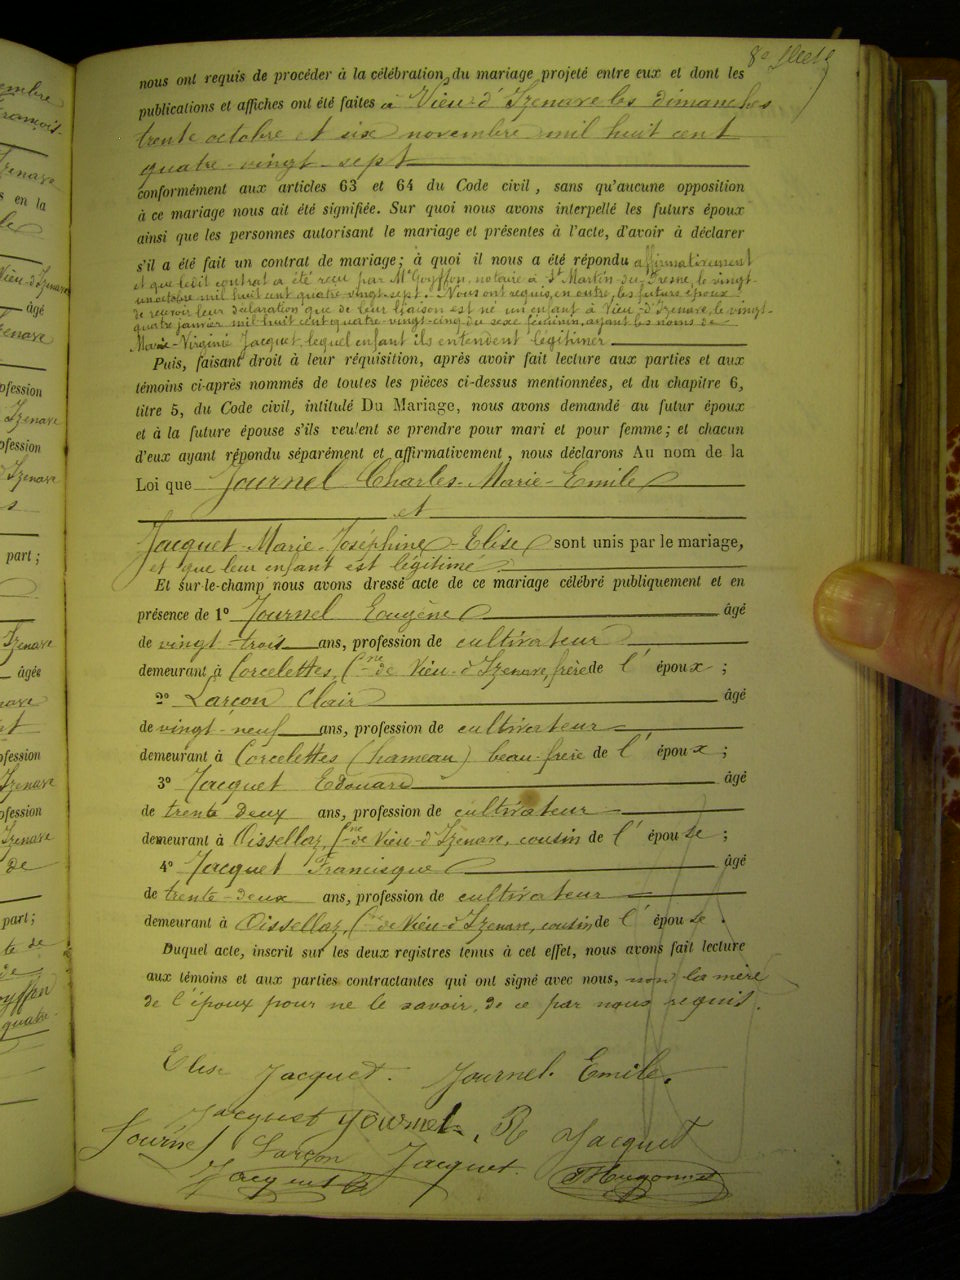 8e
nous ont requis de procéder à la célébration du mariage projeté entre eux et dont les
publications et affiches ont été faites à Vieu-d'Izenave les dimanches
trente octobre et six novembre mil huit cent
quatre-vingt-sept
conformément aux articles 63 et 64 du Code civil, sans qu'aucune opposition
à ce mariage nous ait été signifiée. Sur quoi nous avons interpellé les futurs époux
ainsi que les personnes autorisant le mariage et présentes à l'acte, d'avoir à déclarer
s'il a été fait un contrat de mariage; à quoi il nous a été répondu affirmativement
et que ledit contrat a été reçu par Me Goyffon, notaire à St Martin-du-Fresne, le vingt-
un octobre mil huit cent quatre-vingt-sept. Nous ont requis, en outre, les futurs époux
de recevoir leur déclaration que de leur liaison est né un enfant à Vieu-d'Izenave, le vingt-
quatre janvier mil huit cent quatre-vingt-cinq du sexe féminin, ayant les noms de
Marie-Virginie Jacquet, lequel enfant ils entendent légitimer
Puis, faisant droit à leur réquisition, après avoir fait lecture aux parties et aux
témoins ci-après nommés de toutes les pièces ci-dessus mentionnées, et du chapitre 6,
titre 5, du Code civil, intitulé Du Mariage, nous avons demandé au futur époux
et à la future épouse s'ils veulent se prendre pour mari et pour femme; et chacun
d'eux ayant répondu séparément et affirmativement, nous déclarons Au nom de la
Loi que Journel Charles-Marie-Emile
et
Jacquet Marie-Joséphine-Elise sont unis par le mariage,
et que leur enfant est légitimé
Et sur-le-champ nous avons dressé acte de ce mariage célébré publiquement et en
présence de 1º Journel Eugène âgé
de vingt-trois ans, profession de cultivateur
demeurant à Corcelettes, Cne de Vieu-d'Izenave, frère de l'époux;
2º Larçon Clair âgé
de vingt-neuf ans, profession de cultivateur
demeurant à Corcelettes (hameau) beau-frère de l'époux;
3º Jacquet Edouard âgé
de trente deux ans, profession de cultivateur
demeurant à Oissellaz, Cne de Vieu-d'Izenave, cousin de l'épouse;
4º Jacquet Francisque âgé
de trente-deux ans, profession de cultivateur
demeurant à Oissellaz, Cne de Vieu-d'Izenave, cousin de l'épouse.
Duquel acte, inscrit sur les deux registres tenus à cet effet, nous avons fait lecture
aux témoins et aux parties contractantes qui ont signé avec nous, non la mère
de l'époux pour ne le savoir, de ce par nous requis.
Elise Jacquet. Journel. Emile.
Jacquet Journel. R Jacquet
Journel Larçon Jacquet
Jacquet Hugonnet